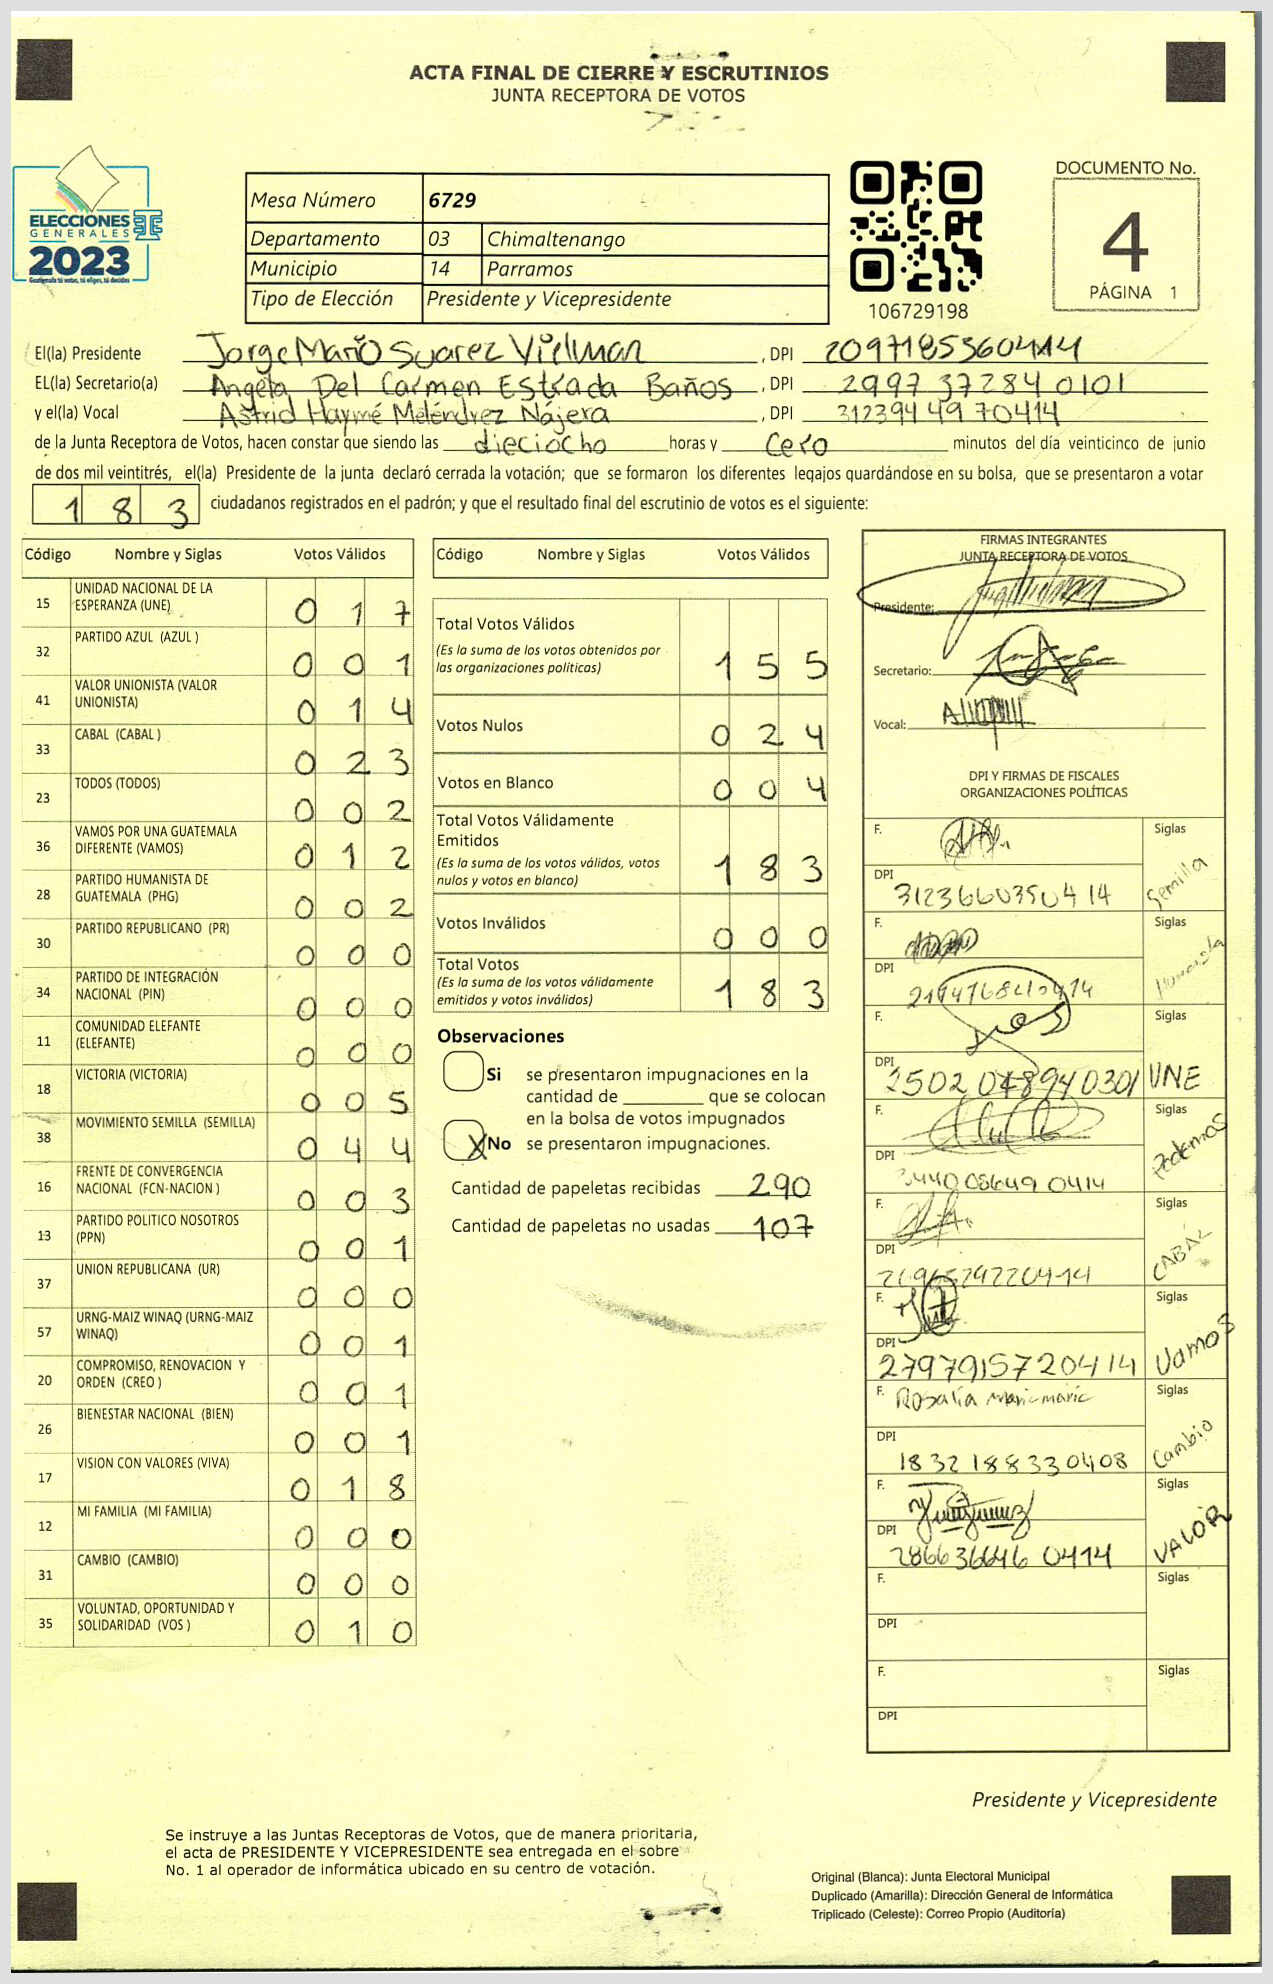 ACTA FINAL DE CIERRE Y ESCRUTINIOS
JUNTA RECEPTORA DE VOTOS
ELECCIONES
GENERALES
2023
Guatemala tú votas, tú eliges, tú decides
Mesa Número 6729
Departamento 03 Chimaltenango
Municipio 14 Parramos
Tipo de Elección Presidente y Vicepresidente
106729198
DOCUMENTO No.
4
PÁGINA 1
El(la) Presidente Jorge Mario Suarez Vielman, DPI 2097185360414
EL(la) Secretario(a) Angela Del Carmen Estrada Baños, DPI 2997 37284 0101
y el(la) Vocal Astrid Haymé Meléndrez Nájera, DPI 312394 49 70414
de la Junta Receptora de Votos, hacen constar que siendo las dieciocho horas y cero minutos del día veinticinco de junio
de dos mil veintitrés, el(la) Presidente de la junta declaró cerrada la votación; que se formaron los diferentes legajos guardándose en su bolsa, que se presentaron a votar
183 ciudadanos registrados en el padrón; y que el resultado final del escrutinio de votos es el siguiente:
Código Nombre y Siglas Votos Válidos
15 UNIDAD NACIONAL DE LA
ESPERANZA (UNE) 017
32 PARTIDO AZUL (AZUL ) 001
41 VALOR UNIONISTA (VALOR
UNIONISTA) 014
33 CABAL (CABAL ) 023
23 TODOS (TODOS) 002
36 VAMOS POR UNA GUATEMALA
DIFERENTE (VAMOS) 012
28 PARTIDO HUMANISTA DE
GUATEMALA (PHG) 002
30 PARTIDO REPUBLICANO (PR) 000
34 PARTIDO DE INTEGRACIÓN
NACIONAL (PIN) 000
11 COMUNIDAD ELEFANTE
(ELEFANTE) 000
18 VICTORIA (VICTORIA) 005
38 MOVIMIENTO SEMILLA (SEMILLA) 044
16 FRENTE DE CONVERGENCIA
NACIONAL (FCN-NACION ) 003
13 PARTIDO POLITICO NOSOTROS
(PPN) 001
37 UNION REPUBLICANA (UR) 000
57 URNG-MAIZ WINAQ (URNG-MAIZ
WINAQ) 001
20 COMPROMISO, RENOVACION Y
ORDEN (CREO ) 001
26 BIENESTAR NACIONAL (BIEN) 001
17 VISION CON VALORES (VIVA) 018
12 MI FAMILIA (MI FAMILIA) 000
31 CAMBIO (CAMBIO) 000
35 VOLUNTAD, OPORTUNIDAD Y
SOLIDARIDAD (VOS ) 010
Código Nombre y Siglas Votos Válidos
Total Votos Válidos
(Es la suma de los votos obtenidos por
las organizaciones políticas) 155
Votos Nulos 024
Votos en Blanco 004
Total Votos Válidamente
Emitidos
(Es la suma de los votos válidos, votos
nulos y votos en blanco) 183
Votos Inválidos 000
Total Votos
(Es la suma de los votos válidamente
emitidos y votos inválidos) 183
Observaciones
Si se presentaron impugnaciones en la
cantidad de ________ que se colocan
en la bolsa de votos impugnados
X No se presentaron impugnaciones.
Cantidad de papeletas recibidas 290
Cantidad de papeletas no usadas 107
FIRMAS INTEGRANTES
JUNTA RECEPTORA DE VOTOS
Presidente:
Secretario:
Vocal:
DPI Y FIRMAS DE FISCALES
ORGANIZACIONES POLÍTICAS
F. Siglas
DPI 3123660350414 Semilla
F. Siglas
DPI
F. Siglas
DPI 2502 048940301 UNE
F. Siglas
DPI Podemos
F. Siglas
DPI CABAL
F. Siglas
DPI 2797915720414 Vamos
F. Rosalia Siglas
DPI 1832188330408 Cambio
F. Siglas
DPI 286636646 0414 VALOR
F. Siglas
DPI
F. Siglas
DPI
Presidente y Vicepresidente
Se instruye a las Juntas Receptoras de Votos, que de manera prioritaria,
el acta de PRESIDENTE Y VICEPRESIDENTE sea entregada en el sobre
No. 1 al operador de informática ubicado en su centro de votación.
Original (Blanca): Junta Electoral Municipal
Duplicado (Amarilla): Dirección General de Informática
Triplicado (Celeste): Correo Propio (Auditoría)